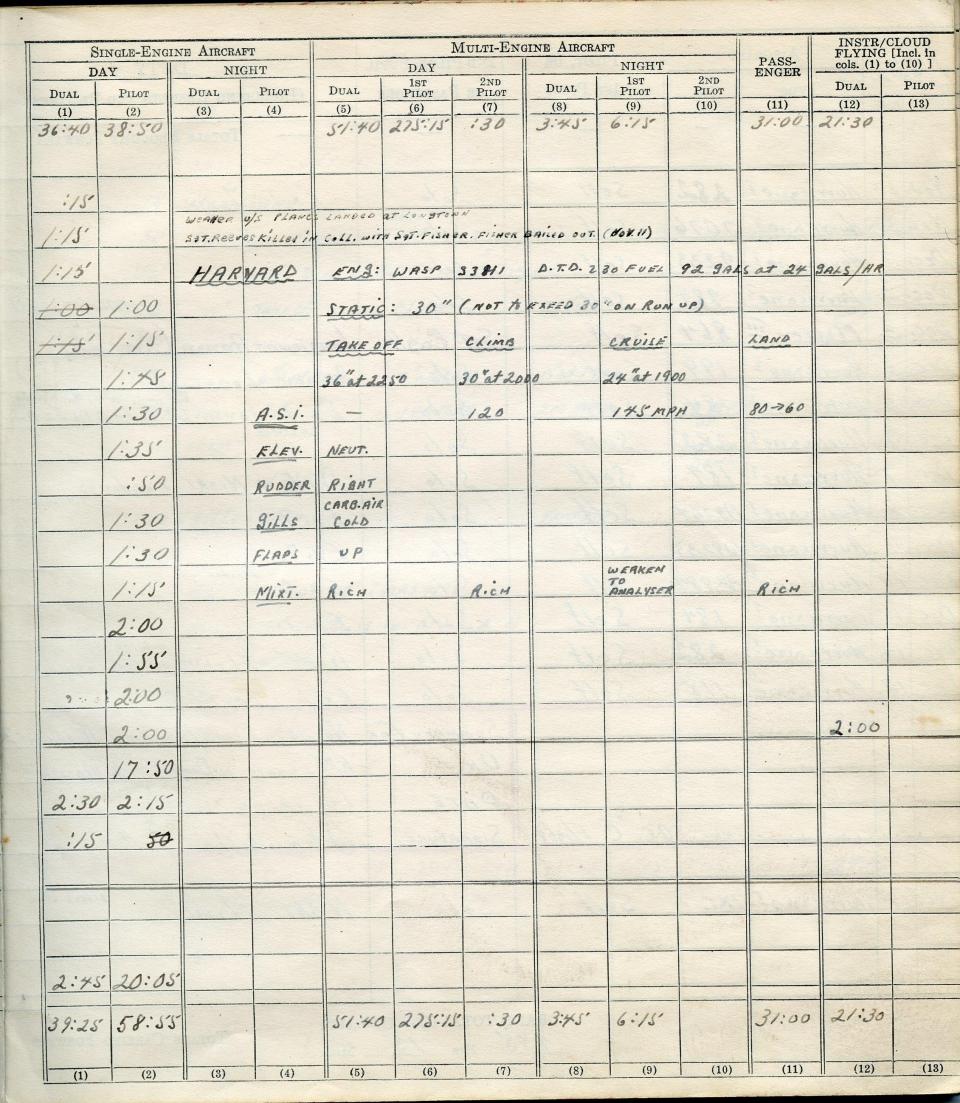 SINGLE-ENGINE AIRCRAFT MULTI-ENGINE AIRCRAFT PASS-ENGER INSTR/CLOUD FLYING [Incl. in cols. (1) to (10) ]
DAY NIGHT DAY NIGHT
DUAL PILOT DUAL PILOT DUAL 1ST PILOT 2ND PILOT DUAL 1ST PILOT 2ND PILOT DUAL PILOT
(1) (2) (3) (4) (5) (6) (7) (8) (9) (10) (11) (12) (13)
36:40 38:50 51:40 275:15 :30 3:45 6:15 31:00 21:30
:15
WEATHER U/S PLANES LANDED AT LONGTOWN
1:15 SGT. REEVES KILLED IN COLL. WITH SGT. FISHER. FISHER BAILED OUT. (NOV. 11)
1:15 HARVARD ENG: WASP S3H1 D.T.D. 230 FUEL 92 GALS at 24 GALS/HR
1:00 1:00 STATIC: 30" (NOT TO EXEED 30" ON RUN UP)
1:15 1:15 TAKE OFF CLIMB CRUISE LAND
1:45 36" at 2250 30" at 2000 24" at 1900
1:30 A.S.I. — 120 145 MPH 80→60
1:35 ELEV. NEUT.
:50 RUDDER RIGHT
1:30 GILLS CARB. AIR COLD
1:30 FLAPS UP
1:15 MIXT. RICH RICH WEAKEN TO ANALYSER RICH
2:00
1:55
2:00
2:00 2:00
17:50
2:30 2:15
:15 50
2:45 20:05
39:25 58:55 51:40 275:15 :30 3:45 6:15 31:00 21:30
(1) (2) (3) (4) (5) (6) (7) (8) (9) (10) (11) (12) (13)